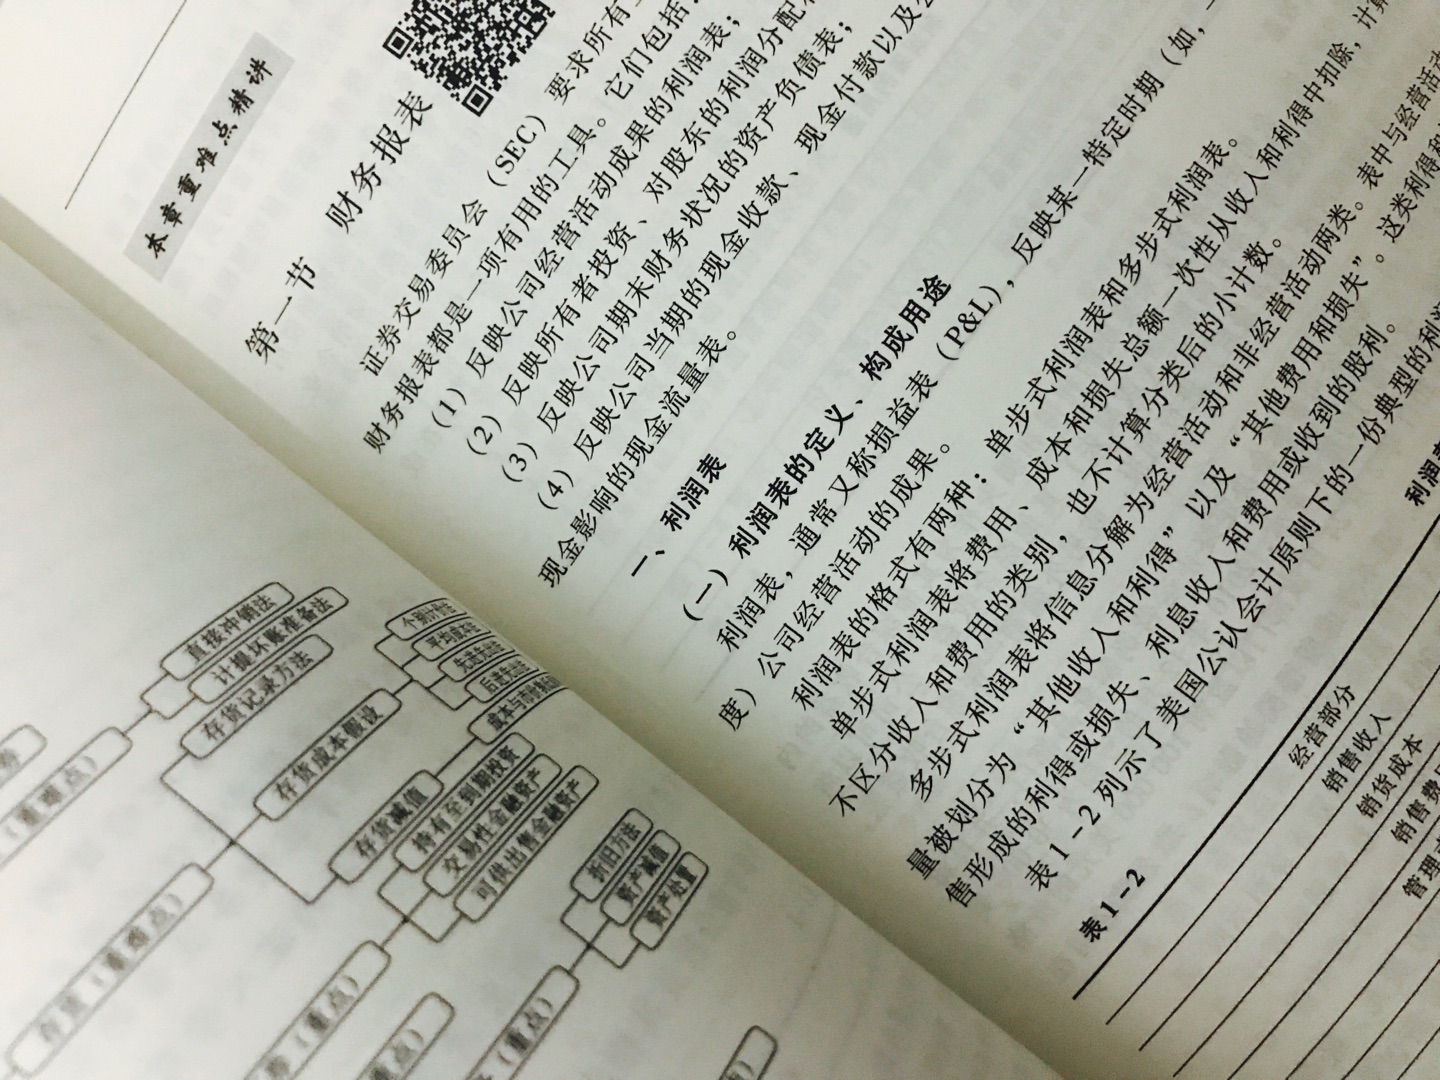 本章重难点精讲
第一节 财务报表
证券交易委员会（SEC）要求所有
财务报表都是一项有用的工具。它们包括：
（1）反映公司经营活动成果的利润表；
（2）反映所有者投资、对股东的利润分配
（3）反映公司期末财务状况的资产负债表；
（4）反映公司当期的现金收款、现金付款以及
现金影响的现金流量表。
一、利润表
（一）利润表的定义、构成用途
利润表，通常又称损益表（P&L），反映某一特定时期（如，
度）公司经营活动的成果。
利润表的格式有两种：单步式利润表和多步式利润表。
单步式利润表将费用、成本和损失总额一次性从收入和利得中扣除，计算
不区分收入和费用的类别，也不计算分类后的小计数。
多步式利润表将信息分解为经营活动和非经营活动两类。表中与经营活动
量被划分为“其他收入和利得”以及“其他费用和损失”。这类利得和
售形成的利得或损失、利息收入和费用或收到的股利。
表1-2列示了美国公认会计原则下的一份典型的利润
表1-2
利润表
经营部分
销售收入
销货成本
销售费
管理
直接冲销法
计提坏账准备法
存货记录方法
存货成本假设
个别计价法
平均成本
先进先出
后进先出
成本与市价孰低
存货减值
持有至到期投资
交易性金融资产
可供出售金融资产
折旧方法
资产减值
资产处置
（重难点）
存货（重难点）
（重点）
（重点）